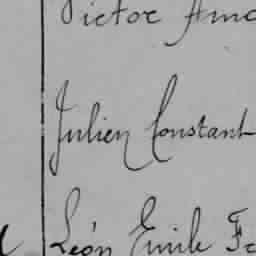 Victor
Julien Constant
Léon Emile